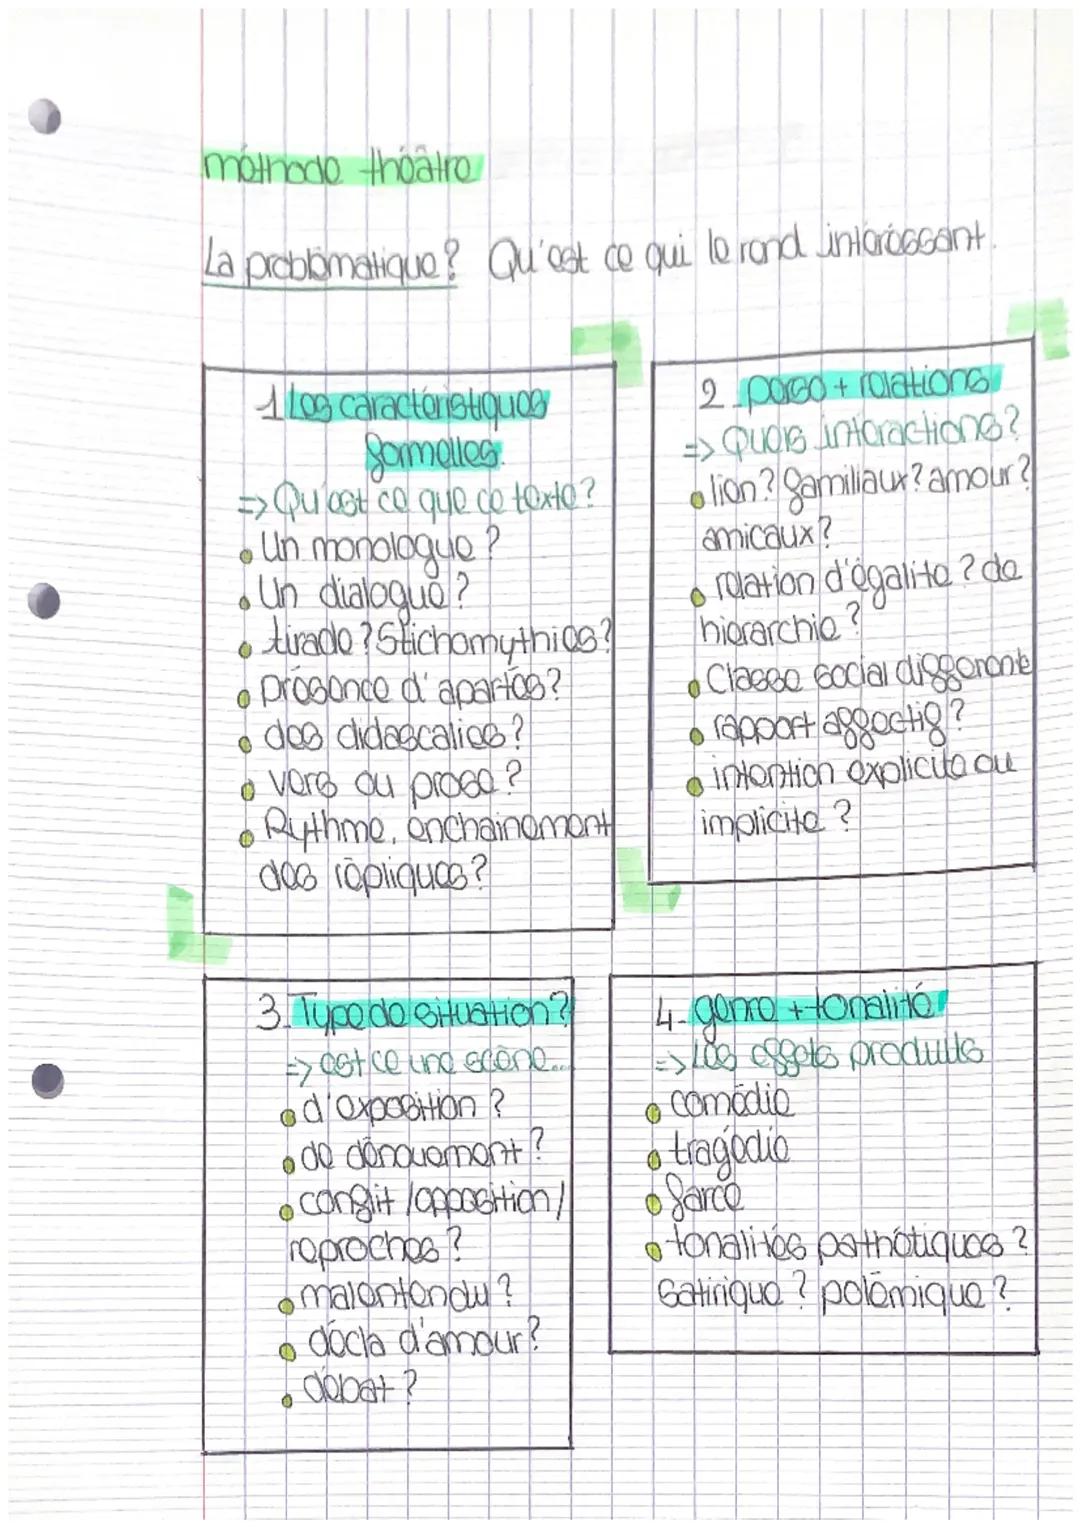 méthode théâtre
La problématique? Qu'est ce qui le rend intéressant.
1 Les caractéristiques
formelles.
=> Qu'est ce que ce texte?
• Un monologue?
• Un dialogue?
• tirade? Stichomythies?
• présence d'apartés?
• des didascalies?
• vers ou prose?
• Rythme, enchainement
des répliques?
2. perso + relations
=> Quels interactions?
• lien? familiaux? amour?
amicaux?
• relation d'égalité? de
hierarchie?
• Classe social différente
• rapport affectif?
• intention explicite ou
implicite?
3. Type de situation?
=> est ce une scène...
• d'exposition?
• de dénouement?
• conflit /opposition/
reproches?
• malentendu?
• décla d'amour?
• débat?
4. genre + tonalité
=> Les effets produits
• comédie
• tragédie
• farce
• tonalités pathétiques?
satirique? polémique?